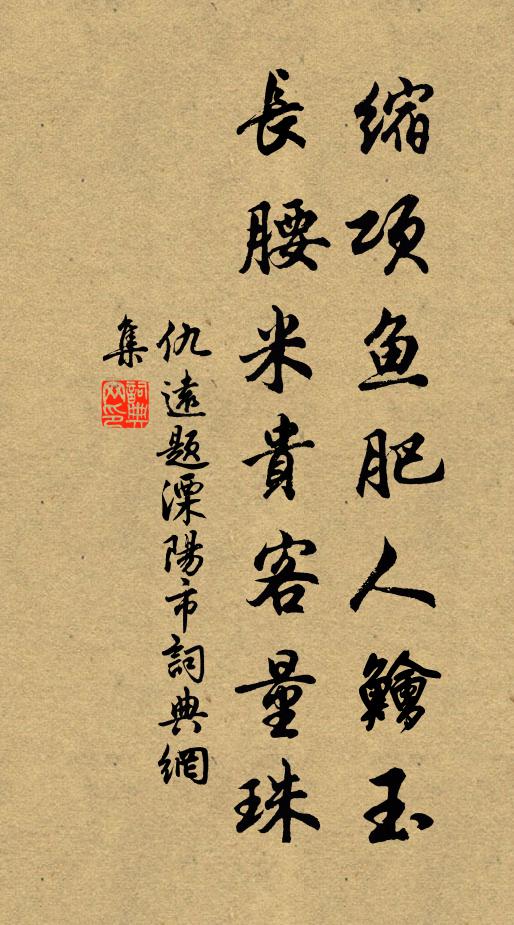 缩项鱼肥人鱠玉
長腰米貴客量珠
仇遠題溧陽市詞典網
集
詞典網印